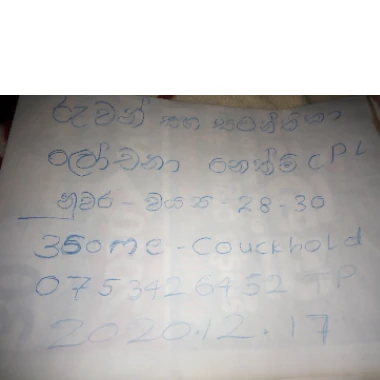 රුවන් සහ සමන්තිකා
ලෝචනා නෙත්මි CPL
නුවර - වයස - 28 - 30
350mc - Couckhold
0753426452 TP
2020.12.17